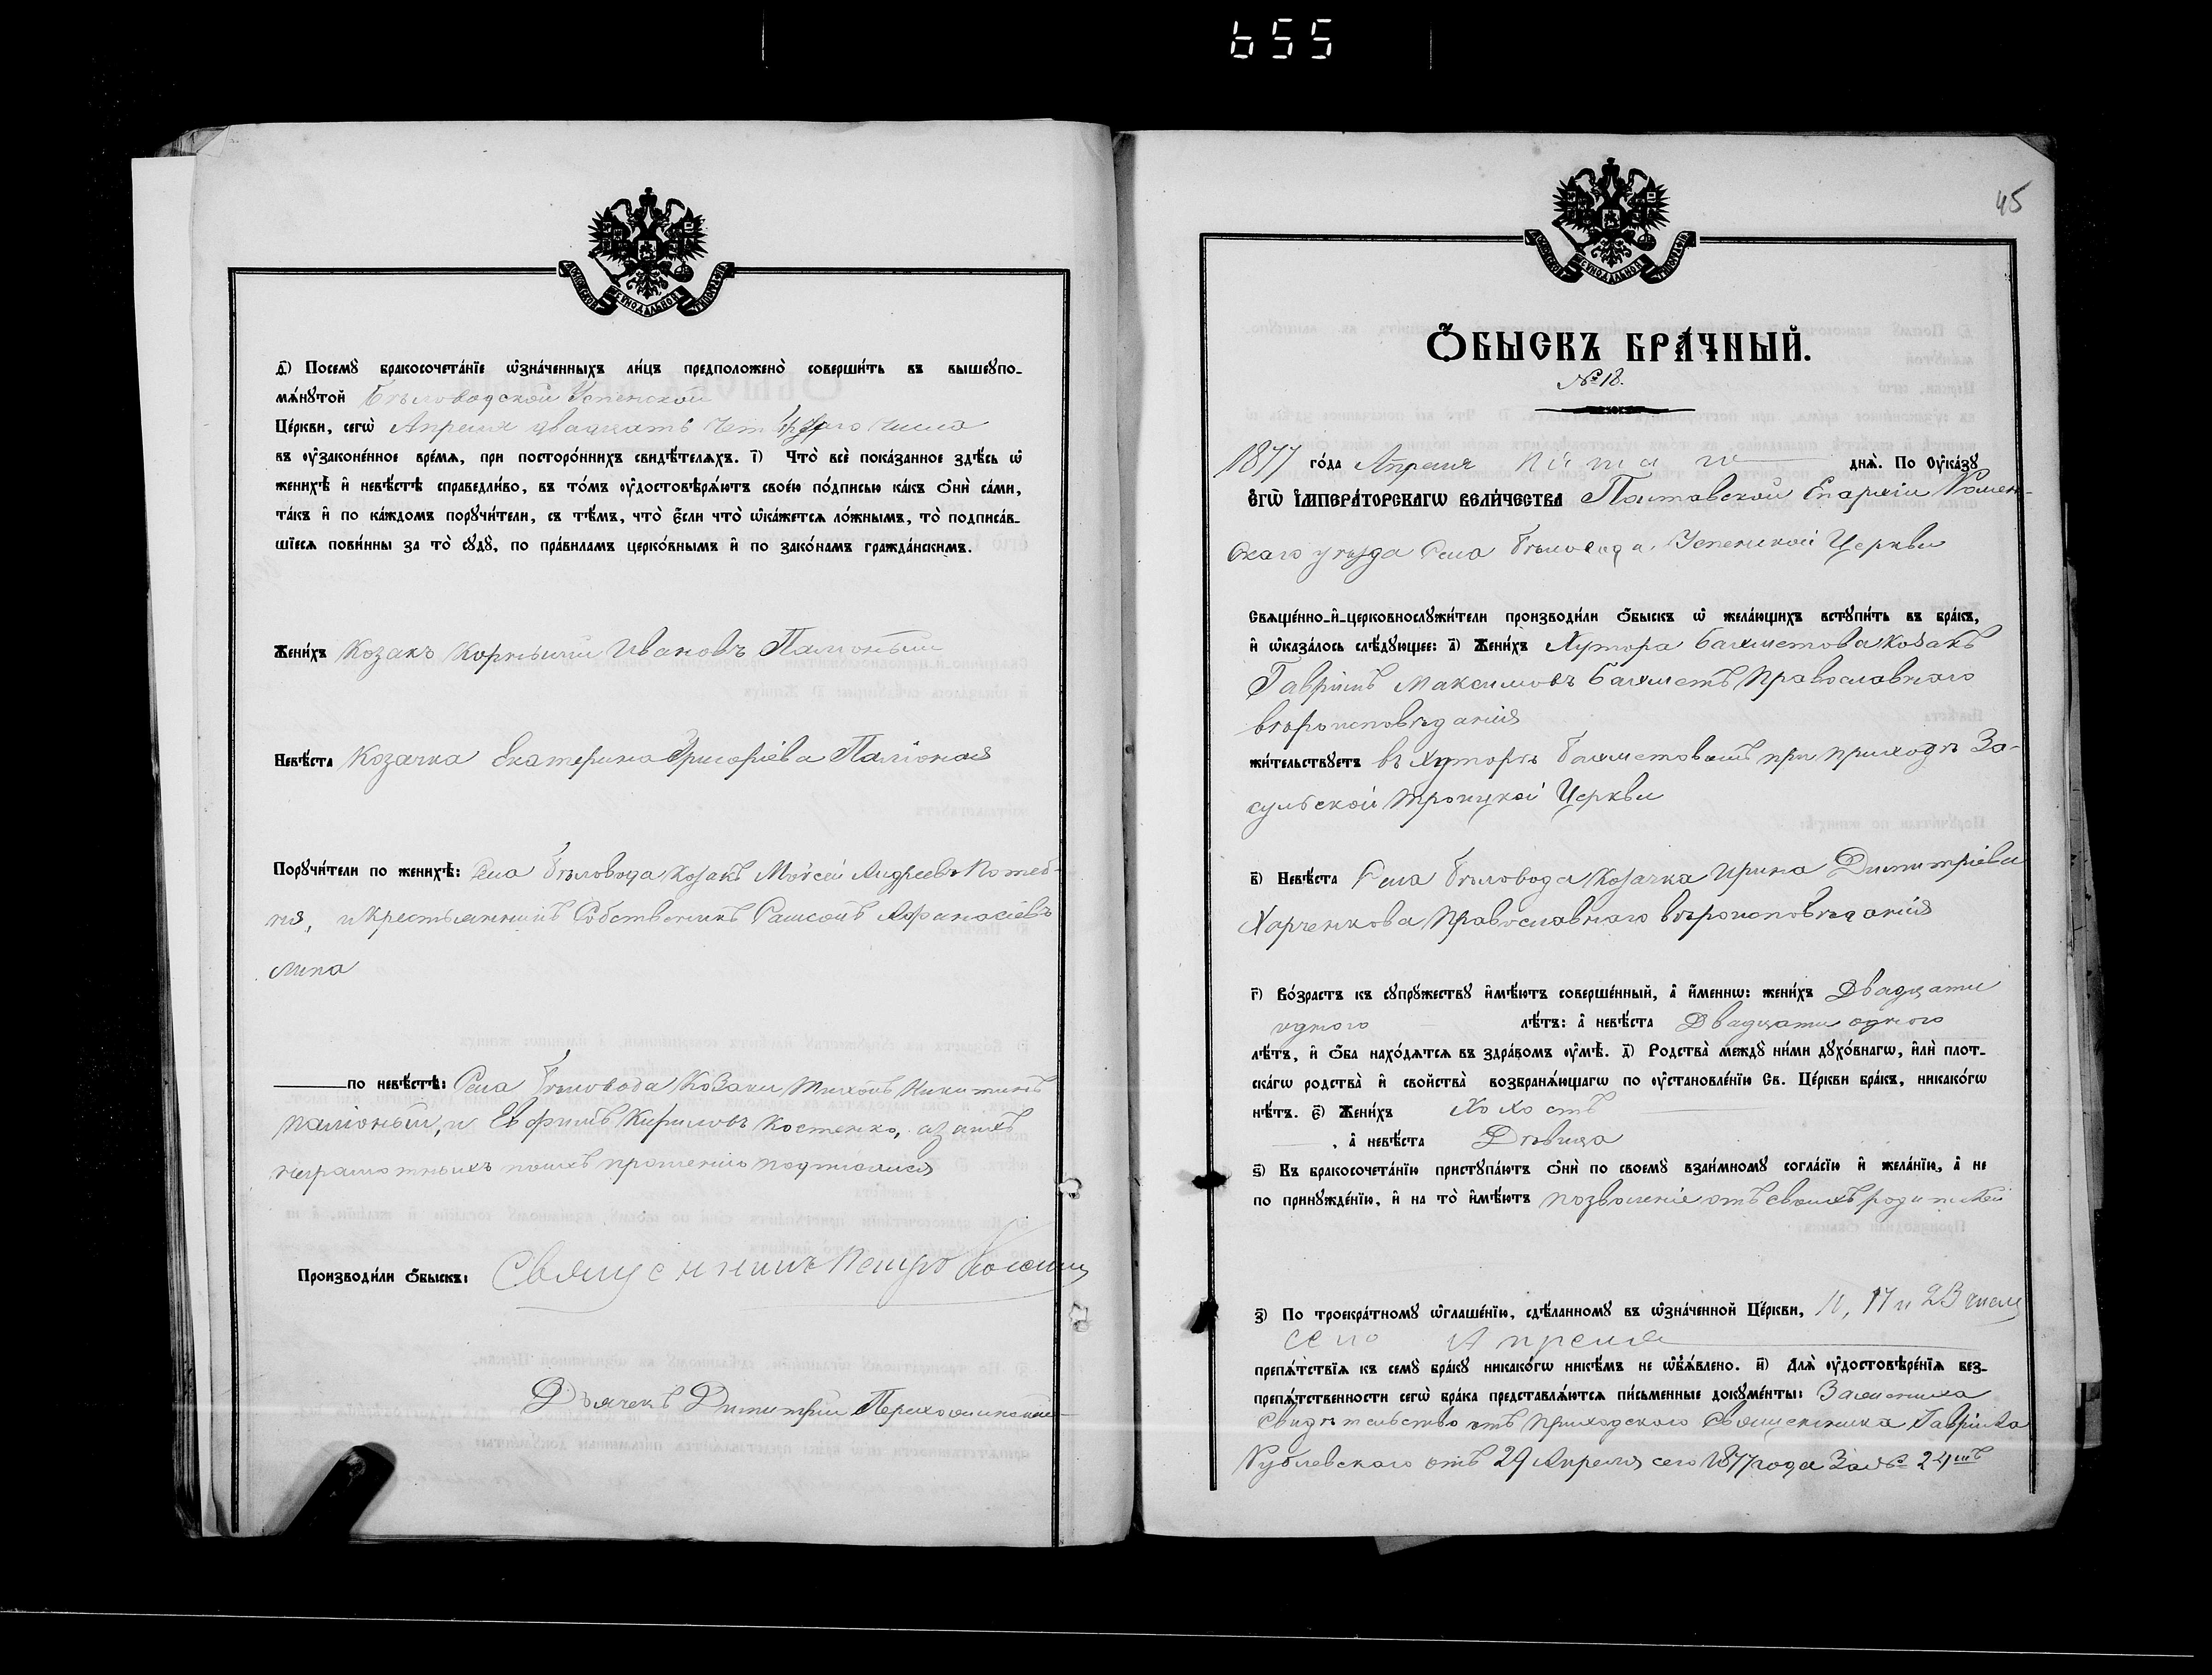 655
д҃) Посемꙋ̀ бракосочета́нїе ѡ҆зна́ченныхъ ли́цъ предположено̀ соверши́ть въ вышеꙋпо-
мѧ́нꙋтой Бѣловодской Успенской
Це́ркви, сегѡ̀ Апреля двадцать четвертаго числа
въ ᲂу҆зако́ненное вре́мѧ, при посторо́ннихъ свидѣ́телѧхъ. і҃) Что̀ всѐ пока́занное здѣ́сь ѡ҆
женихѣ̀ и҆ невѣ́стѣ справедли́во, въ то́мъ ᲂу҆достовѣрѧ́ютъ свое́ю по́дписью ка́къ ѻ҆нѝ са́ми,
та́къ и҆ по ка́ждомъ порꙋчи́тели, съ тѣ́мъ, что̀ є҆́сли что̀ ѡ҆ка́жетсѧ ло́жнымъ, то̀ подписа́в-
шїесѧ пови́нны за то̀ сꙋдꙋ̀, по пра́виламъ церко́внымъ и҆ по зако́намъ гражда́нскимъ.
Жени́хъ Козакъ Корнилій Ивановъ Паліоный
Невѣ́ста Козачка Екатерина Григоріева Паліоная
Порꙋчи́тели по женихѣ̀: Села Бѣловода Козакъ Моѵсей Андреевъ Потеб-
ня, и крестьянинъ Собственикъ Самсонъ Афанасіевъ
Липа
по невѣ́стѣ: Села Бѣловода Козаки Тихонъ Никитинъ
Паліоный, и Евфимъ Кириловъ Костенко, а за нихъ
неграмотныхъ по ихъ прошенію подписался
Производи́ли ѻ҆́быскъ: Священникъ Петръ
Дьячекъ Димитрій
45
Ѻ҆́БЫСКЪ БРА́ЧНЫЙ.
№ 18.
1877 го́да Апреля пятаго днѧ̀. По Оу҆ка́зꙋ
Є҆гѡ̀ І҆мпера́торскагѡ Вели́чества Полтавской Епархіи Ромен-
скаго уѣзда Села Бѣловода Успенской Церкви
Свѧще́нно-и҆-церковнослꙋжи́тели производи́ли ѻ҆́быскъ ѡ҆ жела́ющихъ встꙋпи́ть въ бра́къ,
и҆ ѡ҆каза́лось слѣ́дꙋющее: а҃) Жени́хъ Хутора Бахметова Козакъ
Гавріилъ Максимовъ Бахметъ Православнаго
вѣроисповѣданія
жи́тельствꙋетъ въ Хуторѣ Бахметовомъ при приходѣ За-
сульской Троицкой Церкви
в҃) Невѣ́ста Села Бѣловода Козачка Ирина Димитріева
Харченкова Православнаго вѣроисповѣданія
г҃) Во́зрастъ къ сꙋпрꙋ́жествꙋ и҆мѣ́ютъ соверше́нный, а҆ и҆́меннѡ: жени́хъ Двадцати
одного лѣ́тъ: а҆ невѣ́ста Двадцати одного
лѣ́тъ, и҆ ѻ҆́ба нахо́дѧтсѧ въ здра́вомъ ᲂу҆мѣ̀. д҃) Родства̀ междꙋ̀ ни́ми дꙋхо́внагѡ, и҆лѝ плот-
ска́гѡ родства̀ и҆ свойства̀ возбранѧ́ющагѡ по ᲂу҆становле́нїю Св. Це́ркви бра́къ, никако́гѡ
нѣ́тъ. є҃) Жени́хъ Холостъ
, а҆ невѣ́ста Дѣвица
ѕ҃) Къ бракосочета́нїю пристꙋпа́ютъ ѻ҆нѝ по своемꙋ̀ взаи́мномꙋ согла́сїю и҆ жела́нїю, а҆ не
по принꙋжде́нїю, и҆ на то̀ и҆мѣ́ютъ позволеніе отъ своихъ родителей
з҃) По троекра́тномꙋ ѡ҆глаше́нїю, сдѣ́ланномꙋ въ ѡ҆зна́ченной Це́ркви, 10, 17 и 23 числ
сего Апреля
препѧ́тствїѧ къ семꙋ̀ бра́кꙋ никако́гѡ никѣ́мъ не ѡ҆б̾ѧ́влено. и҃) Длѧ̀ ᲂу҆достовѣре́нїѧ без-
препѧ́тственности сегѡ̀ бра́ка представлѧ́ютсѧ пи́сьменные докꙋме́нты: Жениха
свидѣтельство отъ приходского Священника Гавріила
Кублевскаго отъ 24 Апреля сего 1877 года За № 24мъ